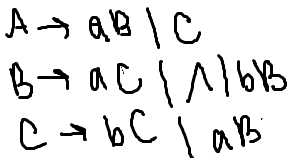 A → aB | C
B → aC | Λ | bB
C → bC | aB